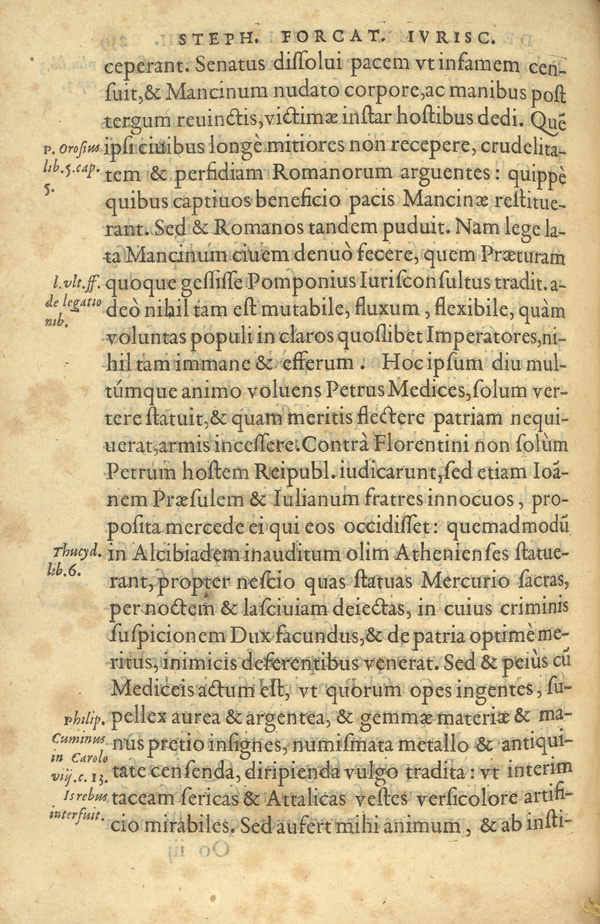 STEPH. FORCAT. IVRISC.
ceperant. Senatus dissolui pacem vt infamem cen-
suit,& Mancinum nudato corpore,ac manibus post
tergum reuinctis,victimæ instar hostibus dedi. Quē
P. Orosius
ipsi ciuibus longè mitiores non recepere, crudelita-
lib.5.cap.
tem & perfidiam Romanorum arguentes: quippè
5.
quibus captiuos beneficio pacis Mancinæ restitue-
rant. Sed & Romanos tandem puduit. Nam lege la-
ta Mancinum ciuem denuò fecere, quem Præturam
l. vlt. ff.
quoque gessisse Pomponius Iurisconsultus tradit. a-
de legatio
deò nihil tam est mutabile, fluxum, flexibile, quàm
nib.
voluntas populi in claros quoslibet Imperatores,ni-
hil tam immane & efferum. Hoc ipsum diu mul-
túmque animo voluens Petrus Medices,solum ver-
tere statuit,& quam meritis flectere patriam nequi-
uerat,armis incessere.Contrà Florentini non solùm
Petrum hostem Reipubl. iudicarunt,sed etiam Ioā-
nem Præsulem & Iulianum fratres innocuos, pro-
posita mercede ei qui eos occidisset: quemadmodū
Thucyd.
in Alcibiadem inauditum olim Athenienses statue-
lib.6.
rant,propter nescio quas statuas Mercurio sacras,
per noctem & lasciuiam deiectas, in cuius criminis
suspicionem Dux facundus,& de patria optimè me-
ritus, inimicis deferentibus venerat. Sed & peiùs cū
Mediceis actum est, vt quorum opes ingentes, su-
Philip.
pellex aurea & argentea, & gemmæ materiæ & ma-
Cuminus
nus pretio insignes, numismata metallo & antiqui-
in Carolo
viij. c. 13.
tate censenda, diripienda vulgo tradita: vt interim
Is rebus
taceam sericas & Attalicas vestes versicolore artifi-
interfuit.
cio mirabiles. Sed aufert mihi animum, & ab insti-